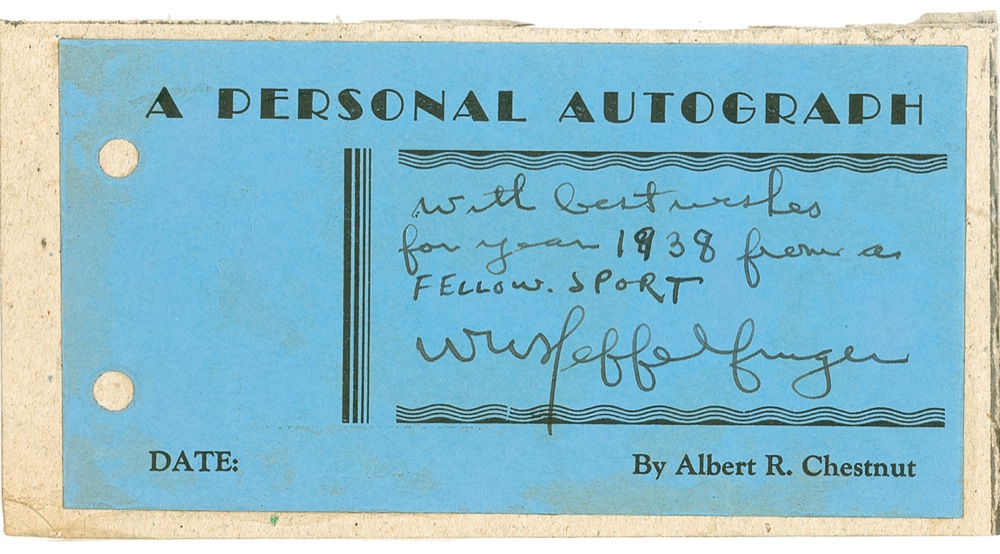 A PERSONAL AUTOGRAPH
with best wishes
for year 1938 from a
FELLOW. SPORT
WW Heffelfinger
DATE:
By Albert R. Chestnut